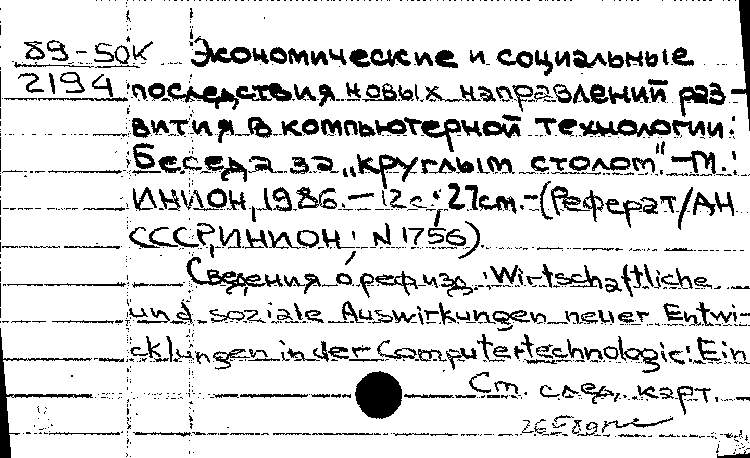 89-50К Экономические и социальные
2194 последствия новых направлений раз-
вития в компьютерной технологии:
Беседа за „круглым столом". - М.:
ИНИОН, 1986. - 12с.; 27см. - (Реферат/АН
СССР, ИНИОН; N 1756).
Сведения о реф. изд.: Wirtschaftliche
und soziale Auswirkungen neuer Entwi-
cklungen in der Computertechnologie: Ein
См. след. карт.